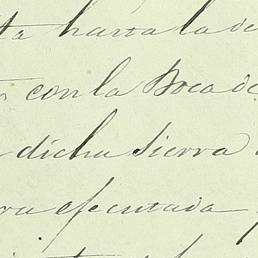 ta hasta la de
con la Boca de
dicha sierra
ra efecutada